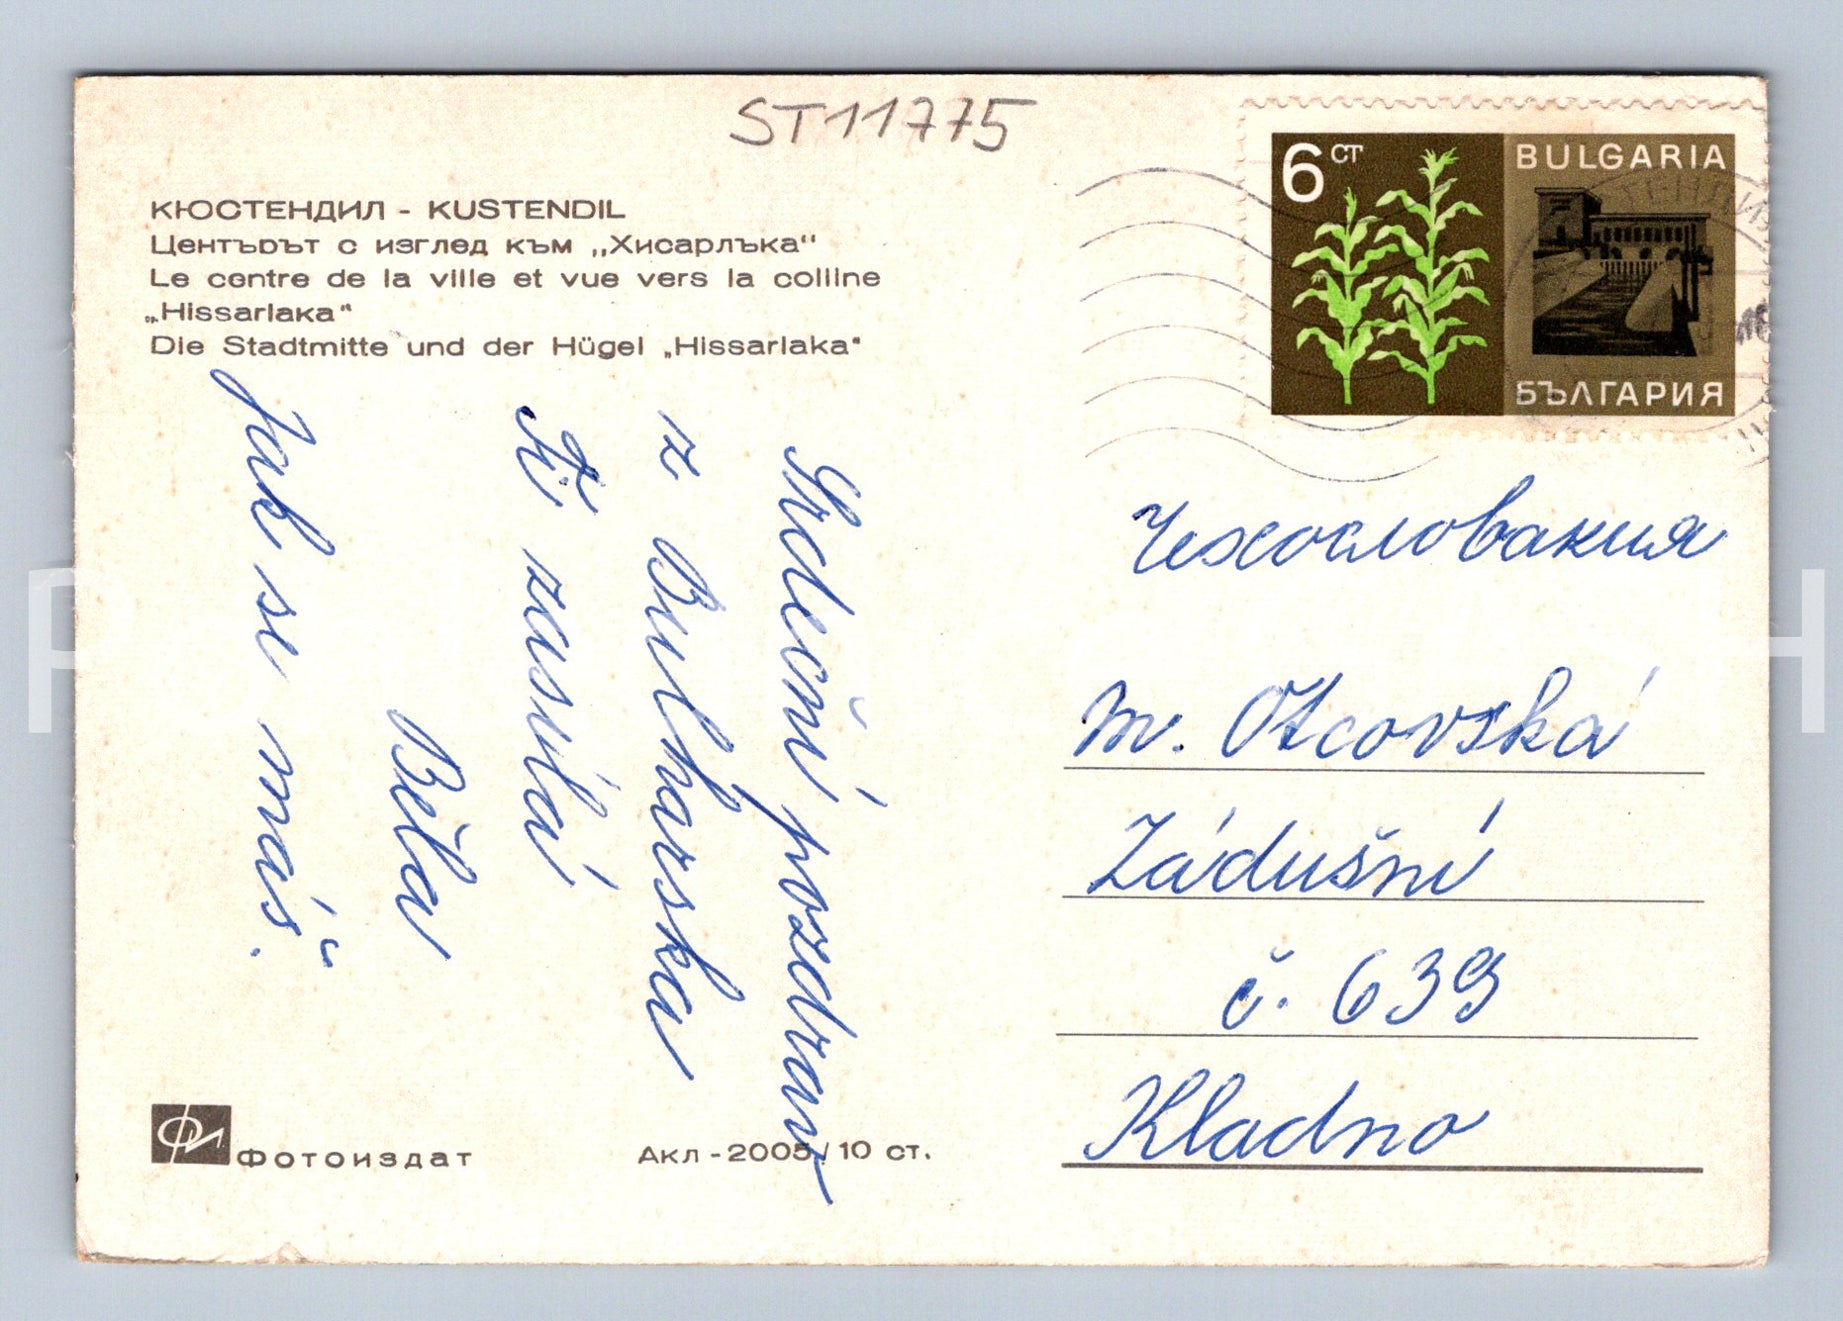 ST11775
КЮСТЕНДИЛ - KUSTENDIL
Центърът с изглед към „Хисарлъка"
Le centre de la ville et vue vers la colline
„Hissarlaka"
Die Stadtmitte und der Hügel „Hissarlaka"
6 СТ
BULGARIA
БЪЛГАРИЯ
Srdečný pozdrav
z Bulharska
Ti zasílá
Běla
Jak se máš.
Чехословакия
M. Otcovská
Zádušní
č. 639
Kladno
ФОТОИЗДАТ
Акл - 2005/10 ст.